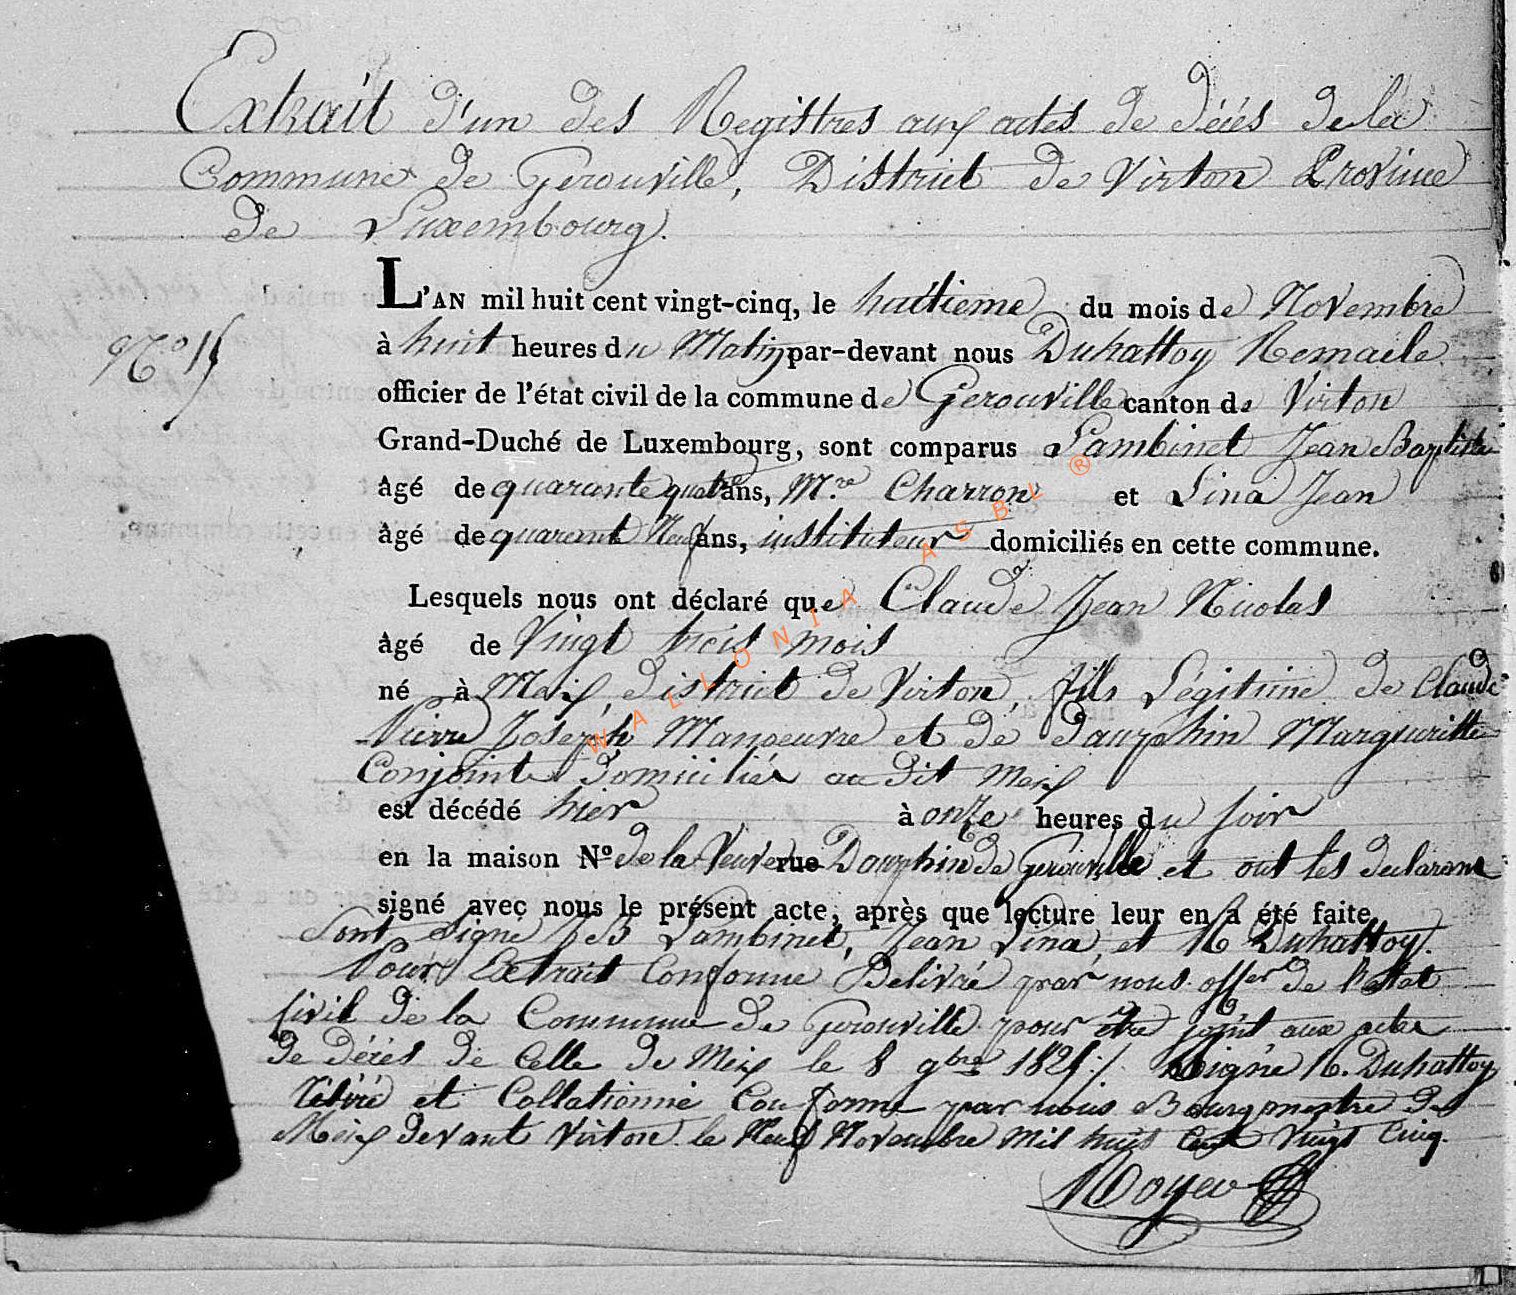 Extrait d'un des Registres aux actes de décés de la
Commune de Gerouville, District de Virton Province
de Luxembourg.
L'AN mil huit cent vingt-cinq, le huitieme du mois de Novembre
à huit heures du Matin par-devant nous Duhattoy Remacle
officier de l'état civil de la commune de Gerouville canton de Virton
Grand-Duché de Luxembourg, sont comparus Lambinet Jean Baptiste
âgé de quarante quatre ans, Mre Charron et Lina Jean
âgé de quarante Neuf ans, instituteur domiciliés en cette commune.
Lesquels nous ont déclaré que Claude Jean Nicolas
âgé de Vingt trois mois
né à Meix, district de Virton, fils Légitime de Claude
Pierre Joseph Manoeuvre et de Dauphin Margueritte
Conjoints domiciliés au dit Meix
est décédé hier à onze heures du soir
en la maison No de la Veuve rue Dauphin de Gerouville et ont les declarans
signé avec nous le présent acte, après que lecture leur en a été faite
Sont Signé JB Lambinet, Jean Lina, et R Duhattoy.
Pour Extrait Conforme Delivré par nous offer de l'etat
Civil de la Commune de Gerouville pour être joint aux actes
de décés de Celle de Meix le 8 9bre 1825 ./. Signé R. Duhattoy
et Collationné Conforme par nous Bourgmestre de
Meix devant Virton le Neuf Novembre mil huit Cent Vingt Cinq.
No 15
WALLONIA ASBL ®